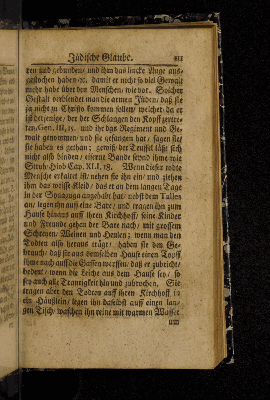 Jüdische Glaube. 213
ten und gebunden / und ihm das lincke Auge aus-
gestochen haben / ꝛc. damit er nicht so viel Gewalt
mehr habe über den Menschen / wie vor. Solcher
Gestalt verblendet man die armen Jüden / daß sie
ja nicht zu Christo kommen sollen / welcher da er
ist derjenige / der der Schlangen den Kopff zertre-
ten / Gen. III, 15. und ihr das Regiment und Ge-
walt genommen / und sie gefangen hat / sagen sie /
sie haben es gethan; gewiß der Teuffel läßt sich
nicht also binden / eiserne Bande seynd ihme wie
Stroh / Hiob Cap. XLI, 18. Wenn dieser todte
Mensche erkaltet ist / nehen sie ihn ein / und ziehen
ihm das weisse Kleid / das er an dem langen Tage
in der Synagoga angehabt hat / nebst dem Tallien
an / legen ihn auff eine Bare / und tragen ihn zum
Hause hinaus auff ihren Kirchhoff / seine Kinder
und Freunde gehen der Bare nach / mit grossem
Schreyen / Weinen und Heulen; wenn man den
Todten also heraus trägt / haben sie den Ge-
brauch / daß sie aus demselben Hause einen Topff
ihme nach auff die Gassen werffen / daß er zubricht /
bedeut / wenn die Leiche aus dem Hause sey / so
sey auch alle Traurigkeit hin und zubrochen. Sie
tragen aber den Todten auff ihren Kirchhoff in
ein Häußlein / legen ihn daselbst auff einen lan-
gen Tisch / waschen ihn reine mit warmen Wasser
um